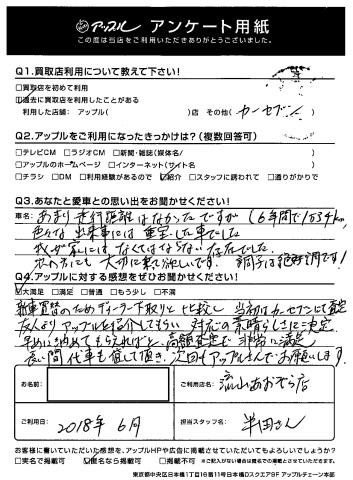 アップル アンケート用紙
この度は当店をご利用いただきありがとうございました。
Q1.買取店利用について教えて下さい!
□買取店を初めて利用
☑過去に買取店を利用したことがある
利用した店舗: アップル( )店 その他(カーセブン)
Q2.アップルをご利用になったきっかけは?(複数回答可)
□テレビCM □ラジオCM □新聞・雑誌(媒体名/ )
□アップルのホームページ □インターネット(サイト名 )
□チラシ □DM □利用経験があるので ☑紹介 □スタッフに誘われて □通りがかりで
Q3.あなたと愛車との思い出をお聞かせください!
車名: あまり走行距離はなかったですが(6年間で1534km)
色々な出来事には重宝した車でした
我が家にはなくてはならない存在でした
次の方にも大切に乗って欲しいです。調子は絶好調です!
Q4.アップルに対する感想をぜひお聞かせください!
☑大満足 □満足 □普通 □もう少し □不満
新車買替のためディーラー下取りと比較し当初はカーセブンにて査定
友人よりアップルを紹介してもらい対応の素晴らしさに決定
早めに決めてもらえればと、高額査定で非常に満足
長い間代車も貸して頂き、次回もアップルさんでお願いします。
お名前:
ご利用店名: 流山おおぞら店
ご利用日: 2018年6月
担当スタッフ名: 半田さん
お客様に書いていただいた感想を、アップルHPや広告に掲載させていただいてもよろしいでしょうか?
□実名で掲載可 ☑匿名なら掲載可 □掲載不可 ※ご記入がない場合は匿名での掲載とさせていただきます。
東京都中央区日本橋1丁目16番11号日本橋Dスクエア9F アップルチェーン本部